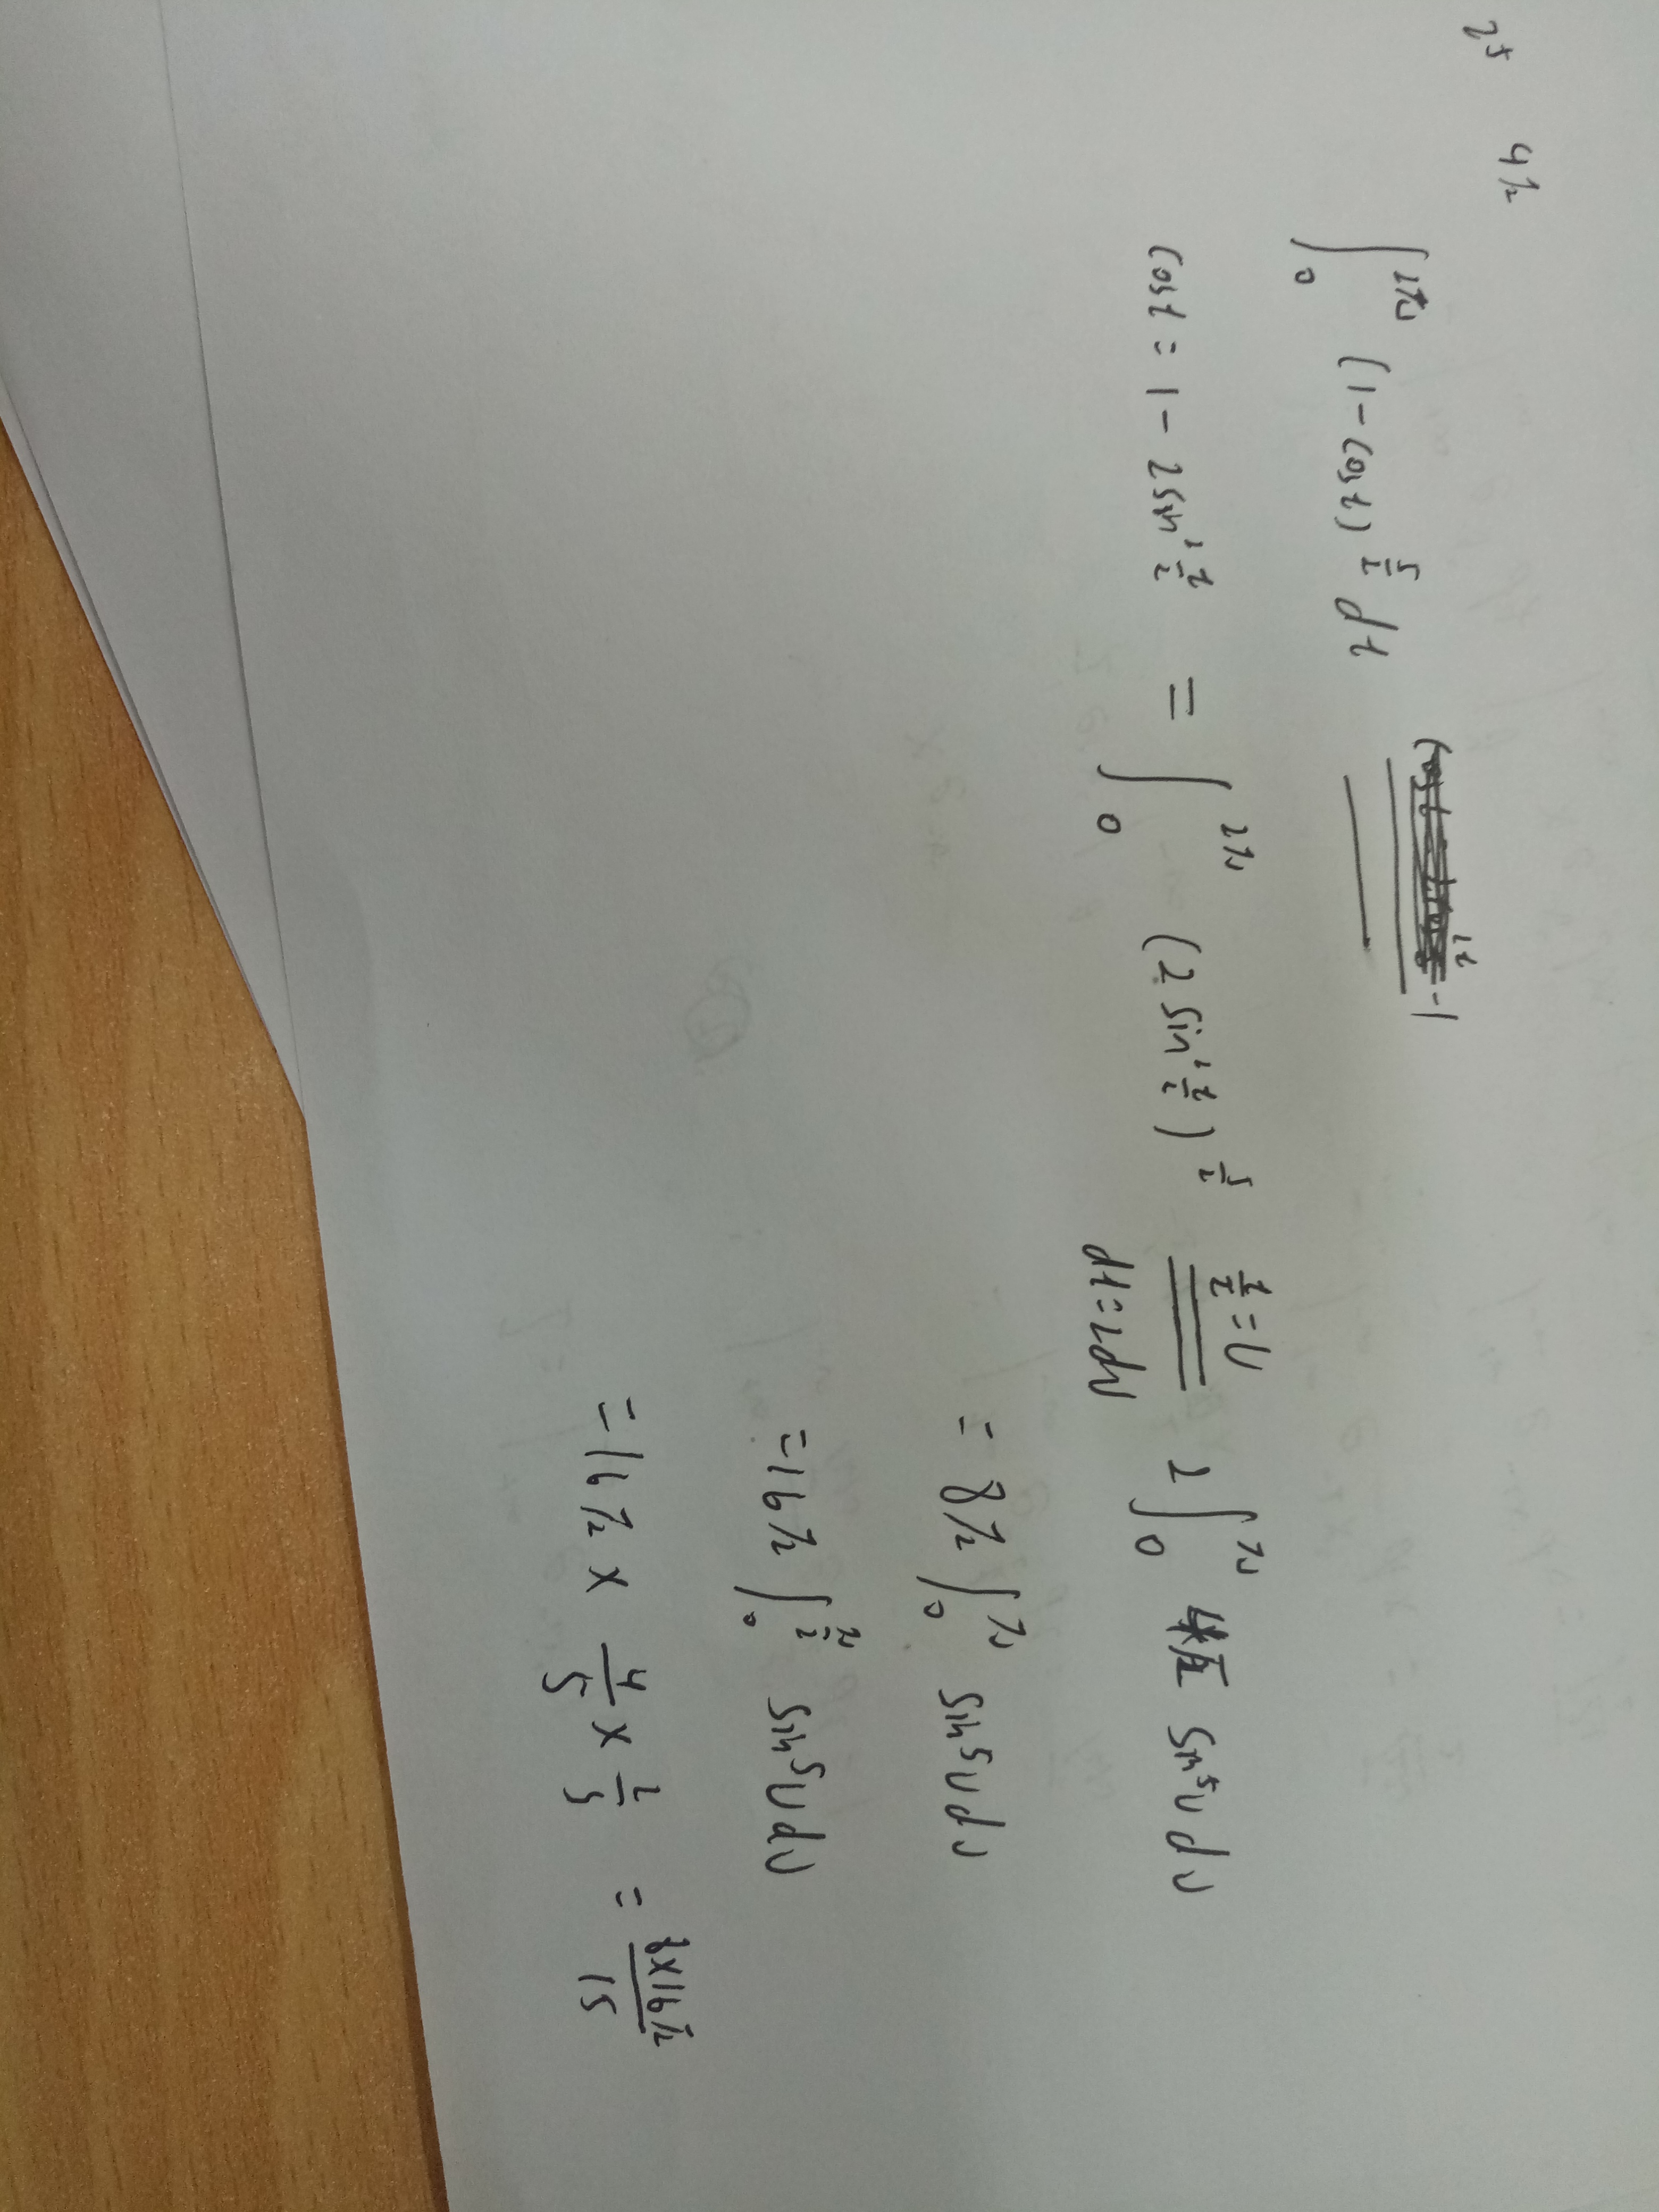 2⁵ 4√2
∫₀^{2π} (1-cost)^{5/2} dt
cost = 1 - 2sin² t/2 = ∫₀^{2π} (2 sin² t/2)^{5/2} t/2 = u dt=2du 2∫₀^π 4√2 sin⁵u du
= 8√2 ∫₀^π sin⁵u du
= 16√2 ∫₀^{π/2} sin⁵u du
= 16√2 × 4/5 × 2/3 = 8×16√2/15